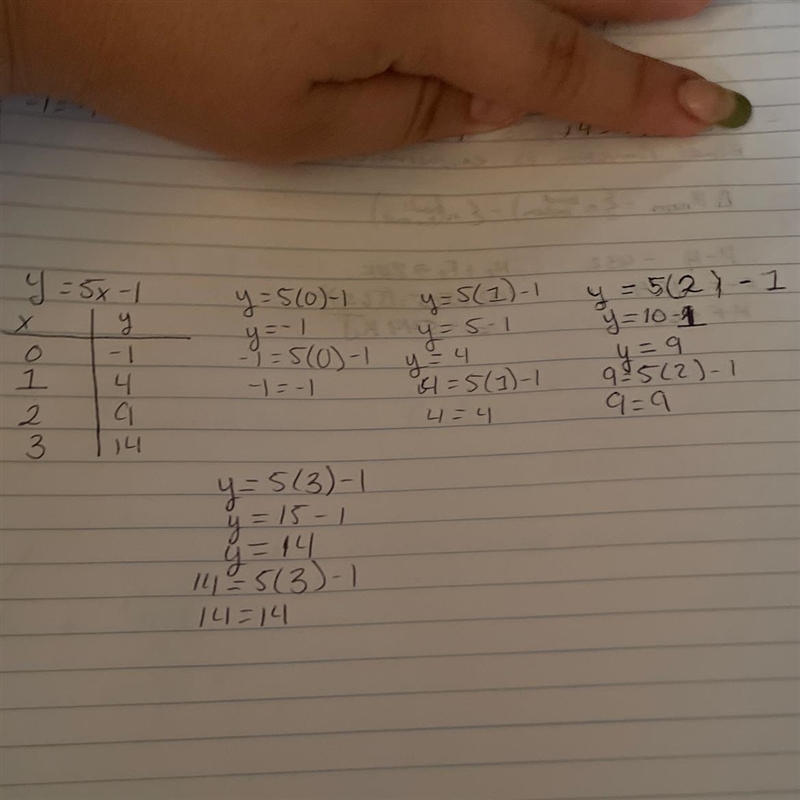 y = 5x - 1
x | y
0 | -1
1 | 4
2 | 9
3 | 14
y = 5(0) - 1
y = - 1
-1 = 5(0) - 1
-1 = -1
y = 5(1) - 1
y = 5 - 1
y = 4
4 = 5(1) - 1
4 = 4
y = 5(2) - 1
y = 10 - 1
y = 9
9 = 5(2) - 1
9 = 9
y = 5(3) - 1
y = 15 - 1
y = 14
14 = 5(3) - 1
14 = 14